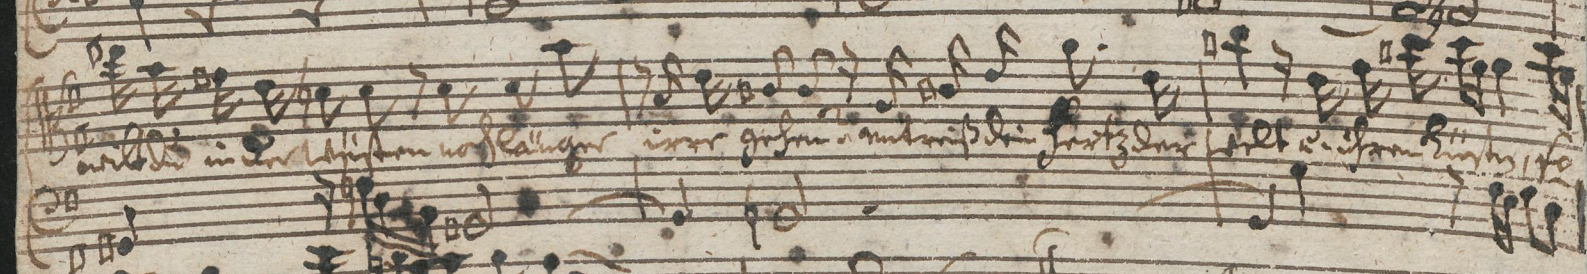 wilt du in der Wüsten noch länger irre gehen entreiß dein Hertz der Welt u. ihren Lüsten, so